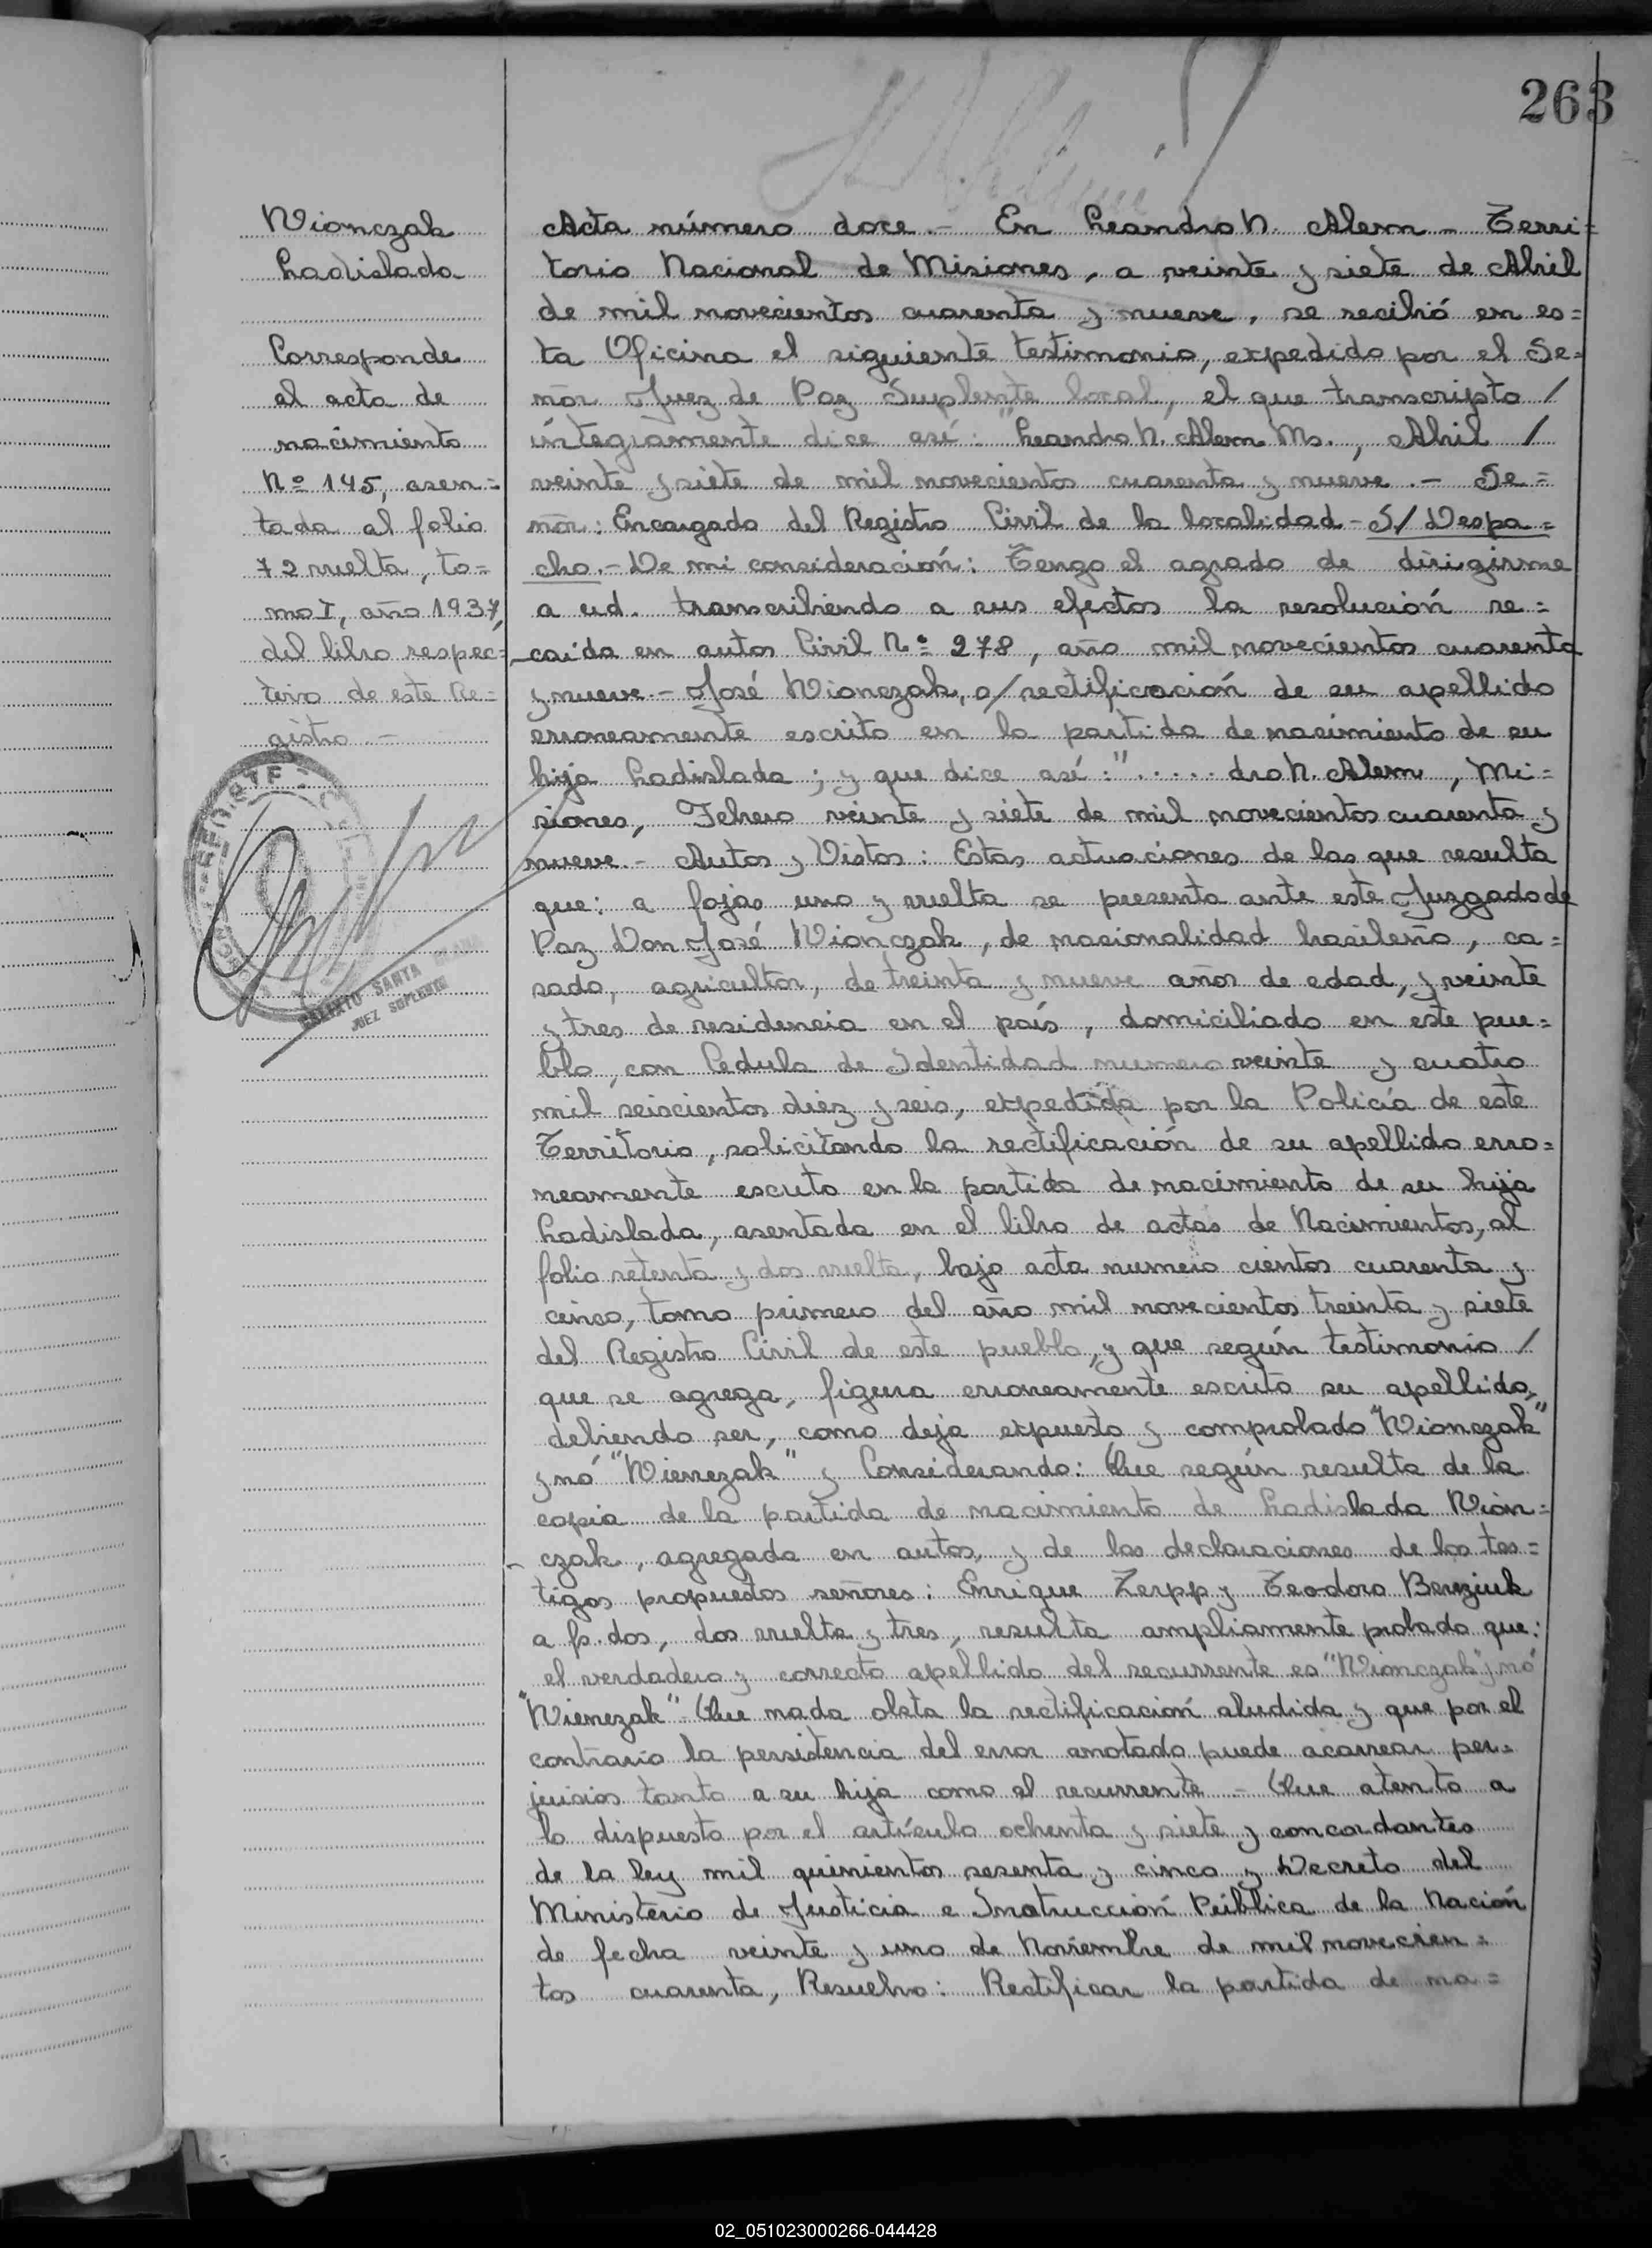 263
Wionczak
Ladislada
Corresponde
al acta de
nacimiento
Nº 145, asen=
tada al folio
72 vuelta, to=
mo I, año 1937,
del libro respec=
tivo de este Re=
gistro.-
JUEZ SUPLENTE
Acta número doce.- En Leandro N. Alem - Terri=
torio Nacional de Misiones, a veinte y siete de Abril
de mil novecientos cuarenta y nueve, se recibió en es=
ta Oficina el siguiente testimonio, expedido por el Se=
ñor Juez de Paz Suplente local, el que transcripto /
íntegramente dice así: "Leandro N. Alem Ms., Abril /
veinte y siete de mil novecientos cuarenta y nueve.- Se=
ñor: Encargado del Registro Civil de la localidad - S/ Despa=
cho.- De mi consideración: Tengo el agrado de dirigirme
a ud. transcribiendo a sus efectos la resolución re=
caida en autos Civil Nº 278, año mil novecientos cuarenta
y nueve.- José Wionczak, s/rectificación de su apellido
erroneamente escrito en la partida de nacimiento de su
hija Ladislada; y que dice así: "..... dro N. Alem, Mi=
siones, Febrero veinte y siete de mil novecientos cuarenta y
nueve.- Autos y Vistos: Estas actuaciones de las que resulta
que: a fojas uno y vuelta se presenta ante este Juzgado de
Paz Don José Wionczak, de nacionalidad brasileño, ca=
sado, agricultor, de treinta y nueve años de edad, y veinte
y tres de residencia en el país, domiciliado en este pue=
blo, con Cedula de Identidad numero veinte y cuatro
mil seiscientos diez y seis, expedida por la Policía de este
Territorio, solicitando la rectificación de su apellido erro=
neamente escrito en la partida de nacimiento de su hija
Ladislada, asentada en el libro de actas de Nacimientos, al
folio setenta y dos vuelta, bajo acta numero cientos cuarenta y
cinco, tomo primero del año mil novecientos treinta y siete
del Registro Civil de este pueblo, y que según testimonio /
que se agrega, figura erroneamente escrito su apellido,
debiendo ser, como deja expuesto y comprobado "Wionczak"
y nó "Wienezak" y Considerando: Que según resulta de la
copia de la partida de nacimiento de Ladislada Wion=
czak, agregada en autos, y de las declaraciones de los tes=
tigos propuestos señores: Enrique Zerpp y Teodoro Bereziuk
a fs. dos, dos vuelta y tres, resulta ampliamente probado que:
el verdadero y correcto apellido del recurrente es "Wionczak" y nó
"Wienezak".- Que nada obsta la rectificación aludida y que por el
contrario la persistencia del error anotado puede acarrear per=
juicios tanto a su hija como al recurrente.- Que atento a
lo dispuesto por el artículo ochenta y siete y concordantes
de la ley mil quinientos sesenta y cinco y Decreto del
Ministerio de Justicia e Instrucción Pública de la Nación
de fecha veinte y uno de Noviembre de mil novecien=
tos cuarenta, Resuelvo: Rectificar la partida de na=
02_051023000266-044428